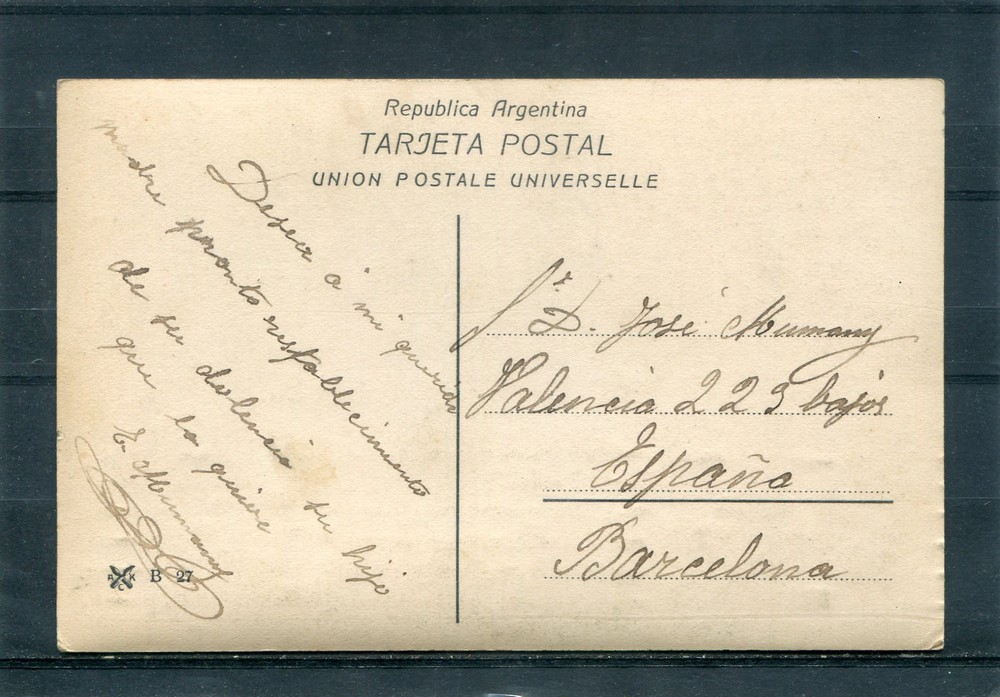 Republica Argentina
TARJETA POSTAL
UNION POSTALE UNIVERSELLE
Deseo á mi querida
madre pronto restablecimiento
de su dolencia su hijo
que la quiere
E. Mumany
Sr. D. José Mumany
Valencia 223 bajos
España
Barcelona
B 27